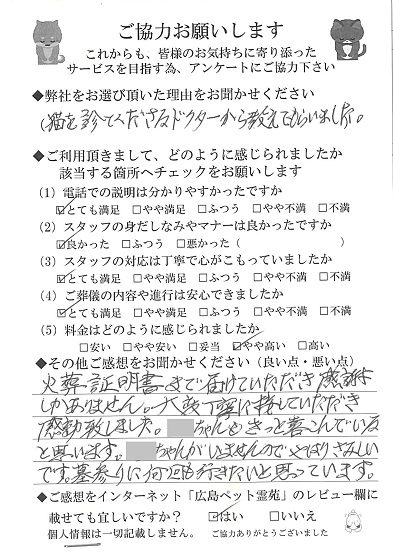 ご協力お願いします
これからも、皆様のお気持ちに寄り添った
サービスを目指す為、アンケートにご協力下さい
◆弊社をお選び頂いた理由をお聞かせください
猫を診てくださるドクターから教えてもらいました。
◆ご利用頂きまして、どのように感じられましたか
該当する箇所へチェックをお願いします
(1) 電話での説明は分かりやすかったですか
☑とても満足 □やや満足 □ふつう □やや不満 □不満
(2) スタッフの身だしなみやマナーは良かったですか
☑良かった □ふつう □悪かった( )
(3) スタッフの対応は丁寧で心がこもっていましたか
☑とても満足 □やや満足 □ふつう □やや不満 □不満
(4) ご葬儀の内容や進行は安心できましたか
☑とても満足 □やや満足 □ふつう □やや不満 □不満
(5) 料金はどのように感じられましたか
□安い □やや安い □妥当 ☑やや高い □高い
◆その他ご感想をお聞かせください(良い点・悪い点)
火葬証明書まで届けていただき感謝
しかありません。大変丁寧に接していただき
感動致しました。 ちゃんもきっと喜こんでいる
と思います。 ちゃんがいませんのでやはりさみしい
です。墓参りに何回も行きたいと思っています。
◆ご感想をインターネット「広島ペット霊苑」のレビュー欄に
載せても宜しいですか? ☑はい □いいえ
個人情報は一切記載しません。 ご協力ありがとうございました